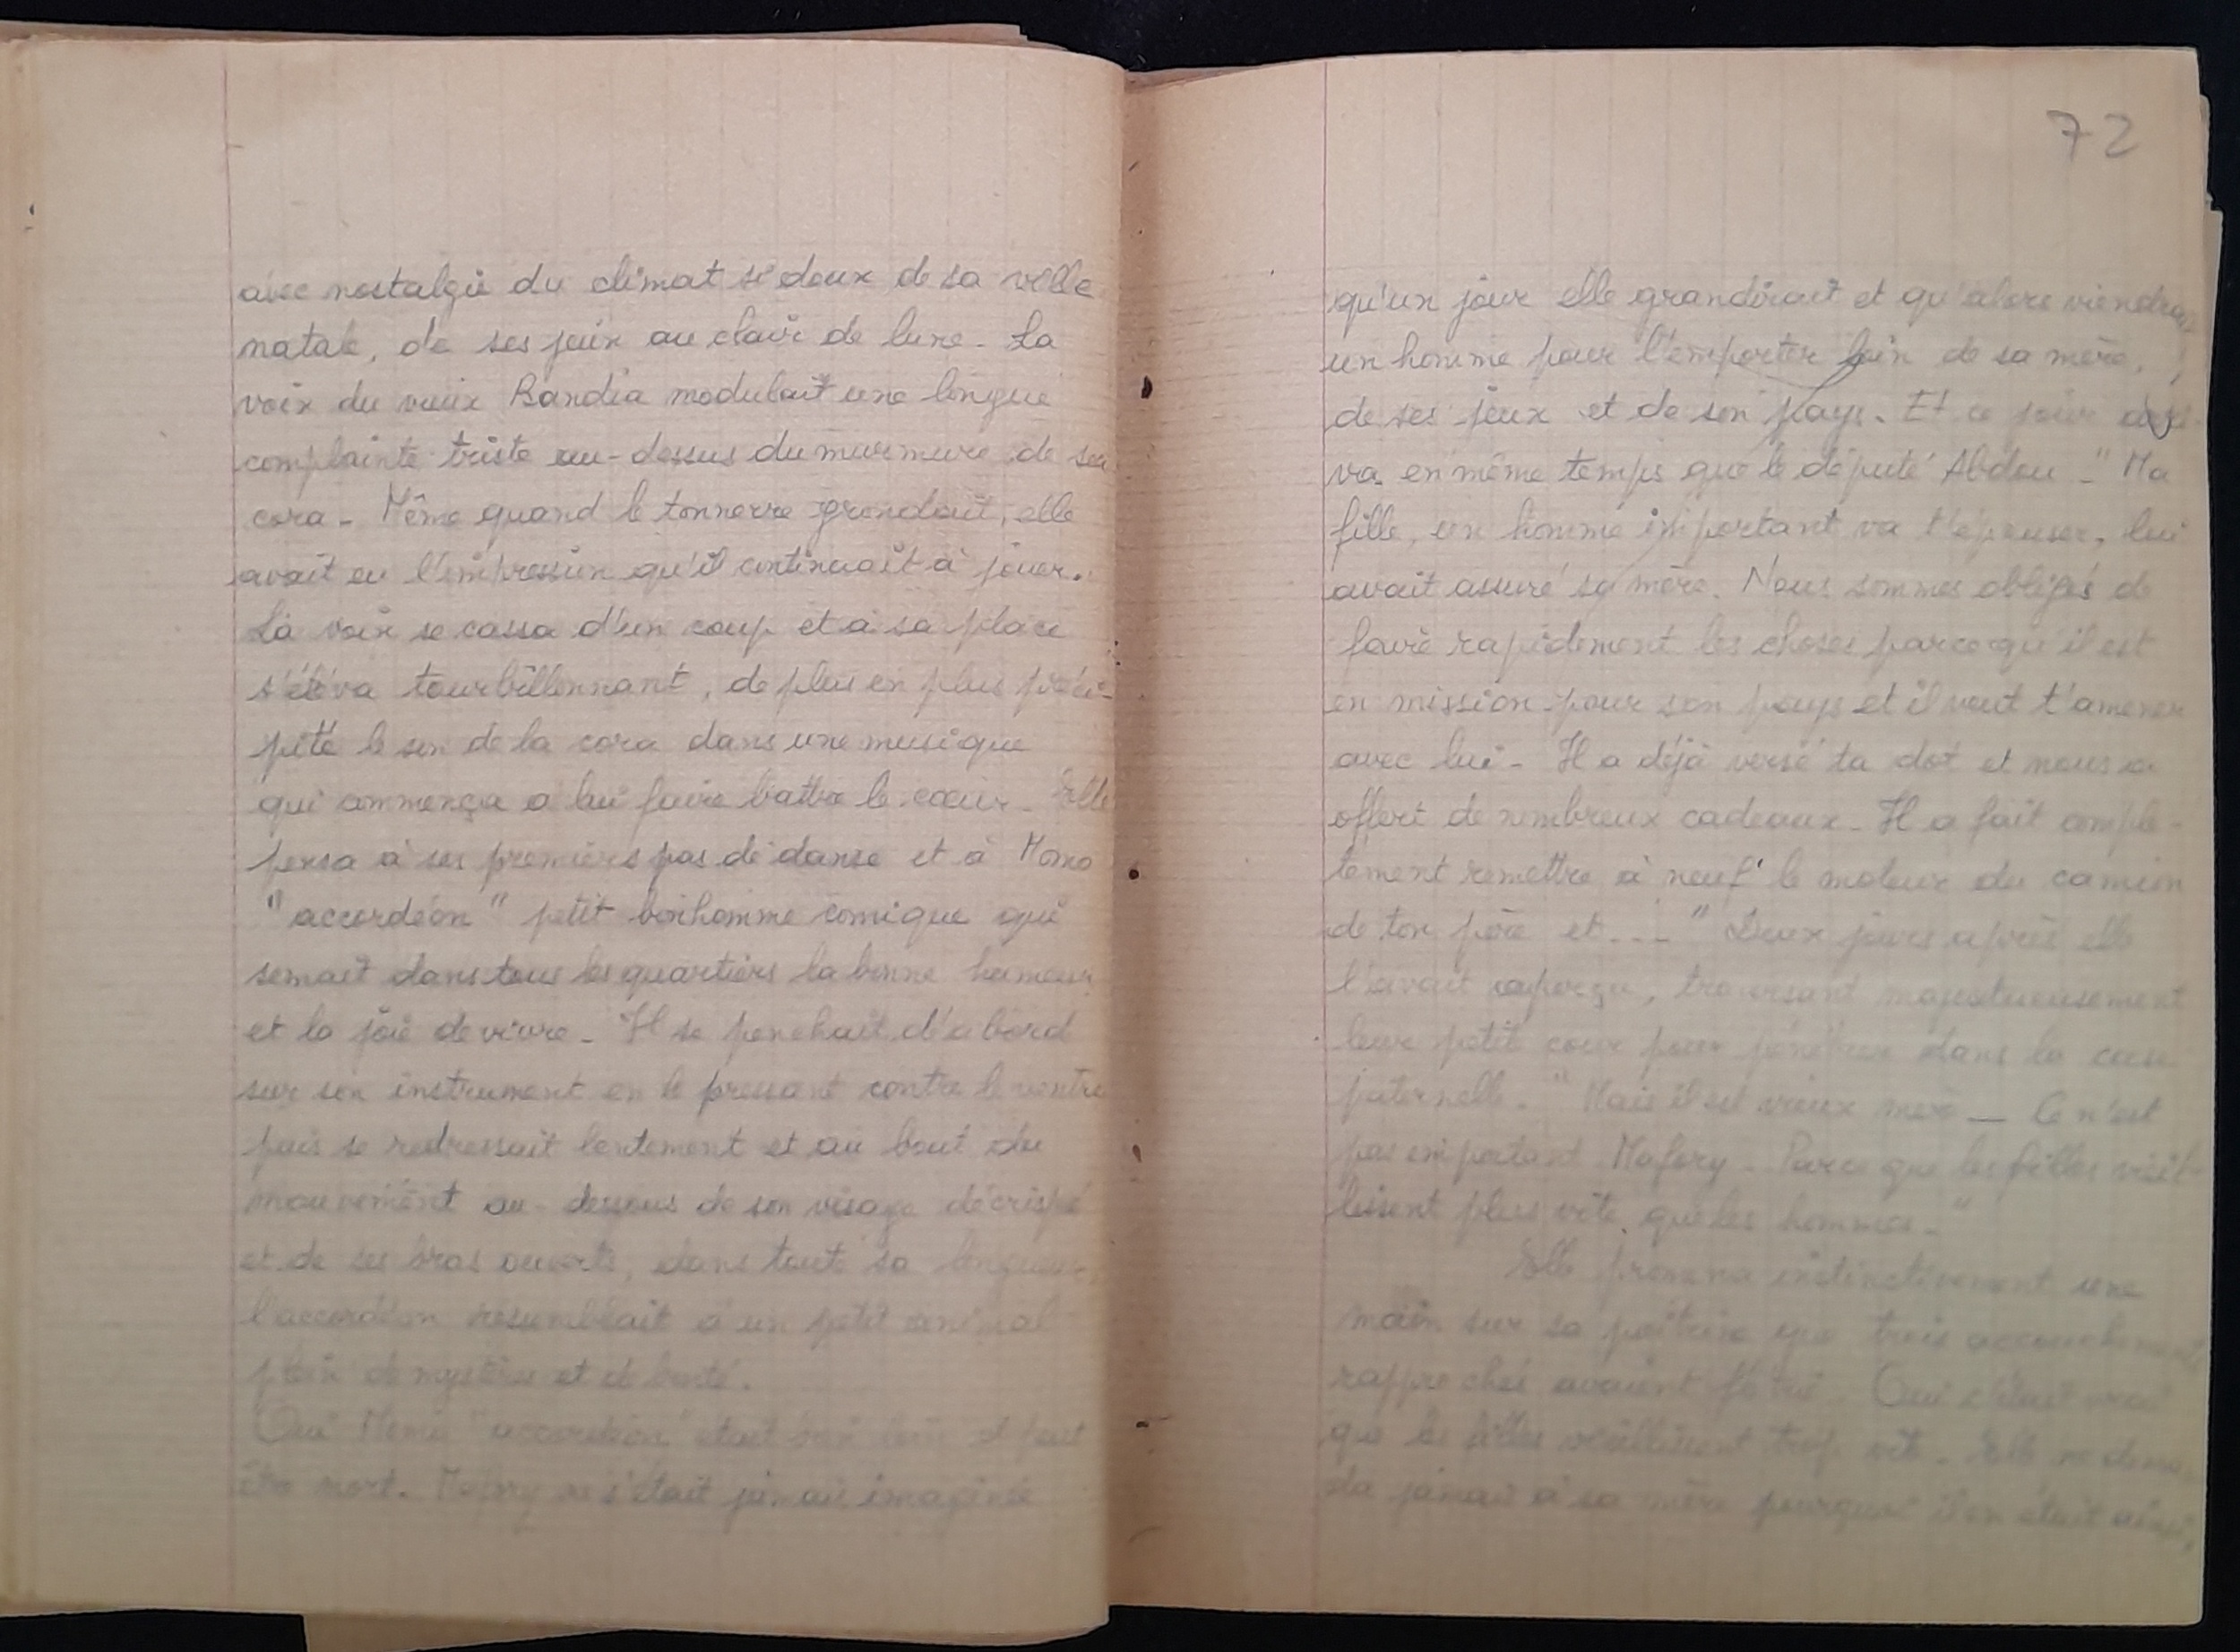 avec nostalgie du climat si doux de sa ville
natale, de ses jeux au clair de lune. La
voix du vieux Bandia modulait une longue
complainte triste au-dessus du murmure de sa
cora - Même quand le tonnerre grondait, elle
avait eu l'impression qu'il continuait à jouer.
La voix se cassa d'un coup et à sa place
s'éleva tourbillonnant, de plus en plus préci-
pité le son de la cora dans une musique
qui commença à lui faire battre le cœur. Elle
pensa à ses premiers pas de danse et à Momo
"accordéon" petit bonhomme comique qui
semait dans tous les quartiers la bonne humeur
et la joie de vivre - Il se penchait d'abord
sur son instrument en le pressant contre le ventre
puis se redressait lentement et au bout du
mouvement au-dessous de son visage décrispé
et de ses bras ouverts, dans toute sa longueur
l'accordéon ressemblait à un petit animal
plein de mystère et de bonté.
Oui Momo "accordéon" était bien loin et peut
être mort. Mafory ne s'était jamais imaginée
72
qu'un jour elle grandirait et qu'alors viendrait
un homme pour l'emporter loin de sa mère,
de ses jeux et de son pays. Et ce jour arri-
va en même temps que le député Abdou - "Ma
fille, un homme important va t'épouser, lui
avait assuré sa mère. Nous sommes obligés de
faire rapidement les choses parce qu'il est
en mission pour son pays et il veut t'amener
avec lui - Il a déjà versé ta dot et nous a
offert de nombreux cadeaux - Il a fait complè-
tement remettre à neuf le moteur du camion
de ton père et ..." Deux jours après elle
l'avait aperçu, traversant majestueusement
leur petite cour pour pénétrer dans la case
paternelle. "Mais il est vieux mère — Ce n'est
pas important Mafory - Parce que les filles vieil-
lissent plus vite que les hommes - "
Elle promena instinctivement une
main sur sa poitrine que trois accouchements
rapprochés avaient flétri. Oui c'était vrai
que les filles vieillissent trop vite - Elle ne deman-
da jamais à sa mère pourquoi il en était ainsi,